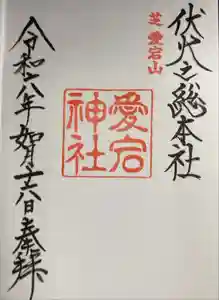 伏火之総本社
芝 愛宕山
愛宕
神社
令和六年如月十六日奉拝